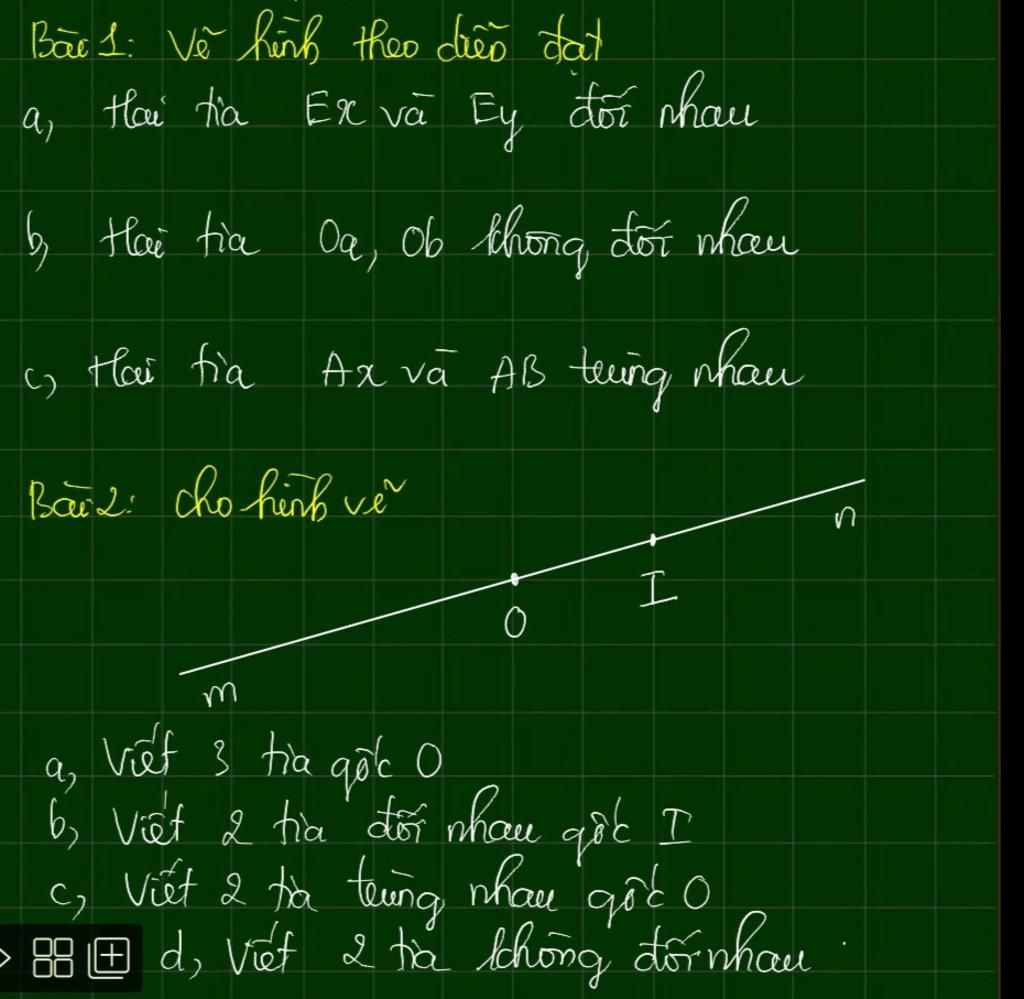 Bài 1: Vẽ hình theo diễn đạt
a, Hai tia Ex và Ey đối nhau
b, Hai tia Oa, Ob không đối nhau
c, Hai tia Ax và AB trùng nhau
Bài 2: Cho hình vẽ
n
I
O
m
a, Viết 3 tia gốc O
b, Viết 2 tia đối nhau gốc I
c, Viết 2 tia trùng nhau gốc O
d, Viết 2 tia không đối nhau